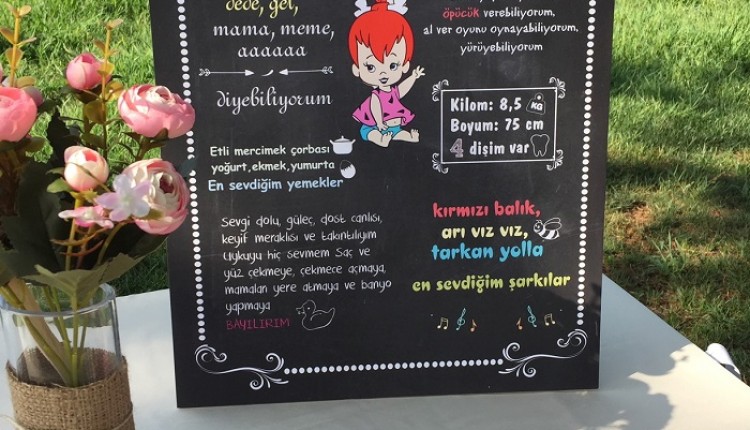 dede, gel,
mama, meme,
aaaaaa
diyebiliyorum
öpücük verebiliyorum,
al ver oyunu oynayabiliyorum,
yürüyebiliyorum
Kilom: 8,5 KG
Boyum: 75 cm
4 dişim var
Etli mercimek çorbası
yoğurt,ekmek,yumurta
En sevdiğim yemekler
Sevgi dolu, güleç, dost canlısı,
keyif meraklısı ve takıntılıyım
Uykuyu hiç sevmem Saç ve
yüz çekmeye, çekmece açmaya,
mamaları yere atmaya ve banyo
yapmaya
BAYILIRIM
kırmızı balık,
arı vız vız,
tarkan yolla
en sevdiğim şarkılar